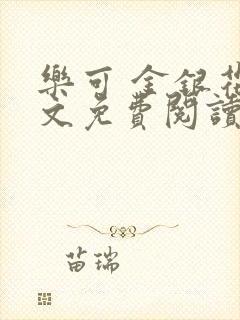 樂可 金銀花
文免費閱讀
苗瑞